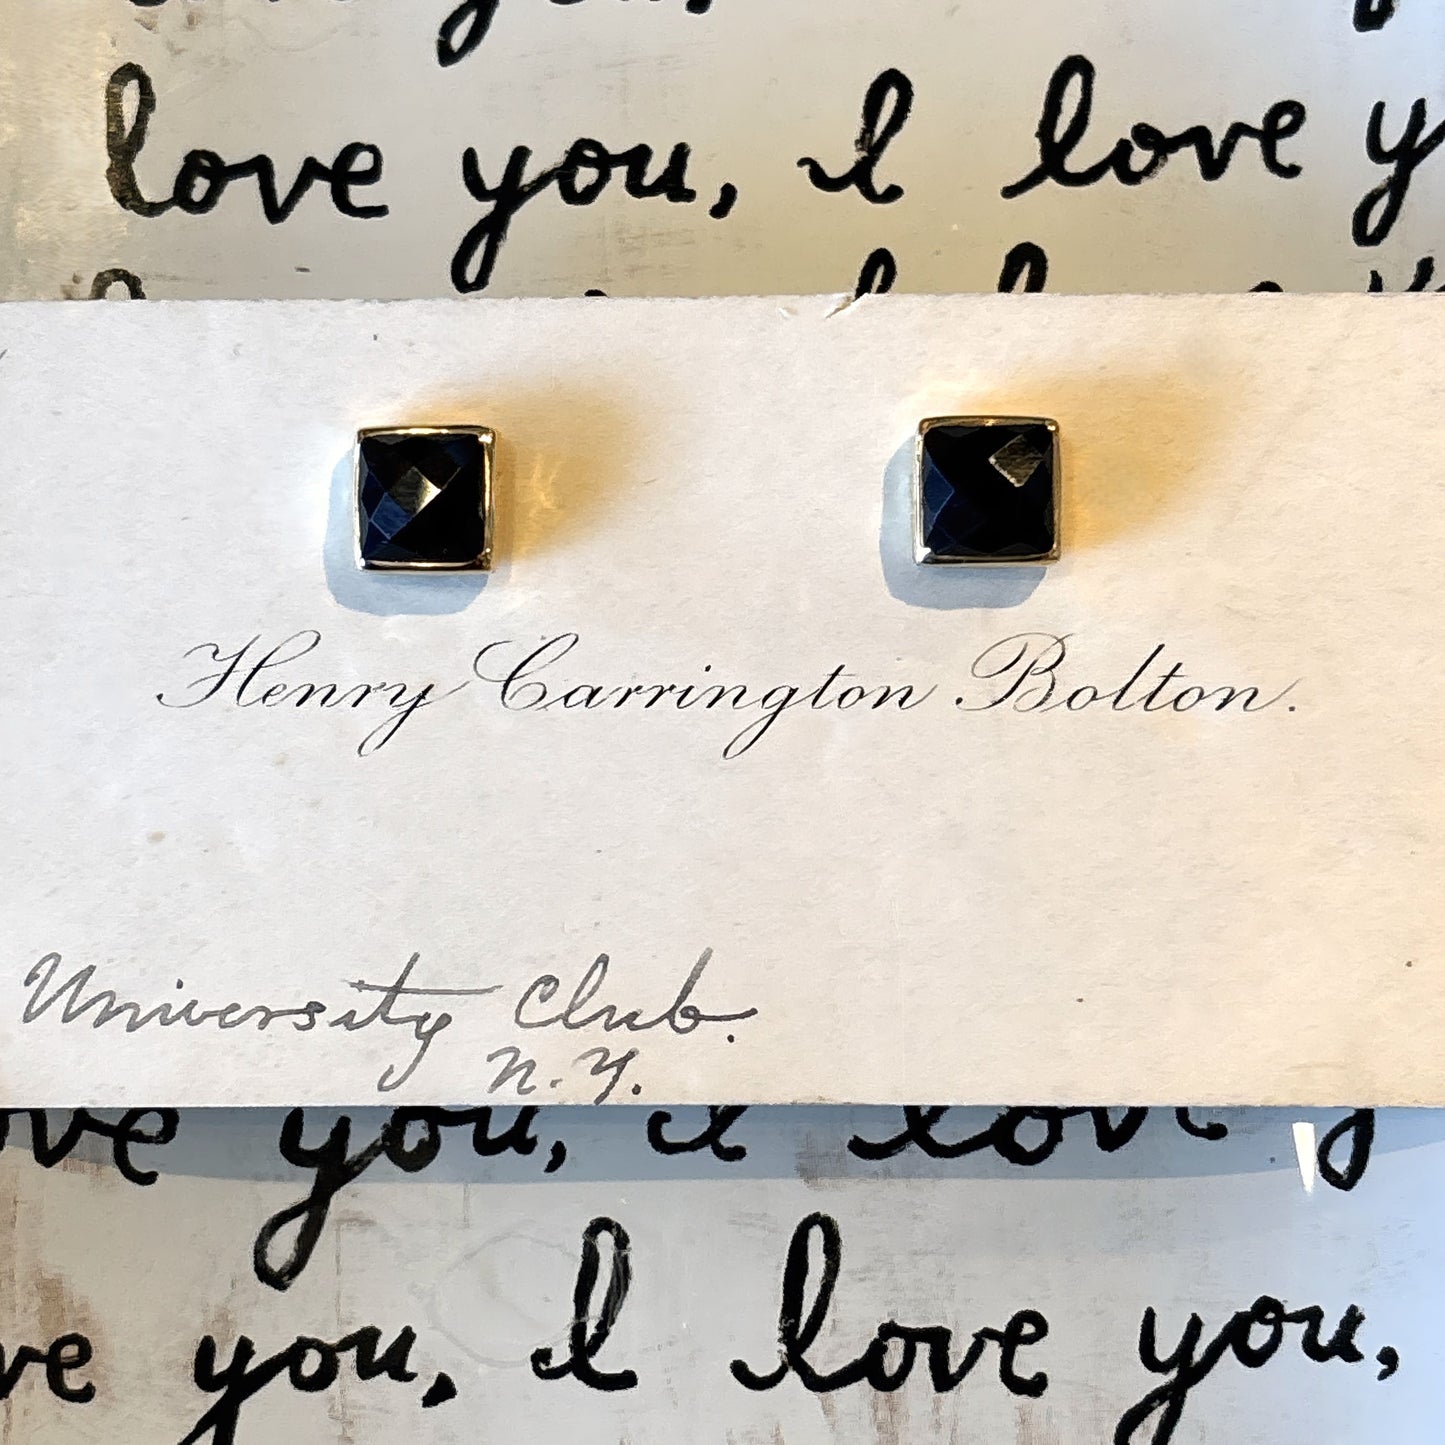 love you,
love you, I love y
Henry Carrington Bolton.
University Club.
N. Y.
ove you, I love y
ve you, I love you,